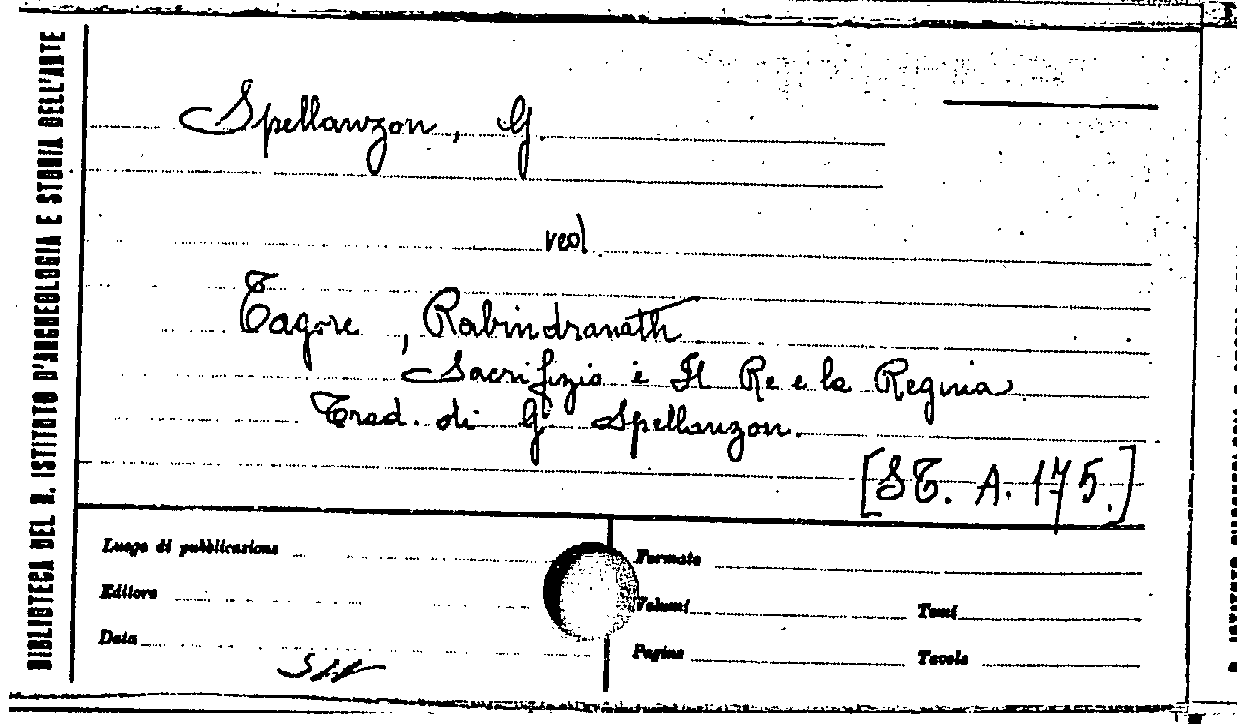 BIBLIOTECA DEL R. ISTITUTO D'ARCHEOLOGIA E STORIA DELL'ARTE
Spellanzon, G.
ved
Tagore, Rabindranath
Sacrifizio e Il Re e la Regina
Trad. di G. Spellanzon.
[ST. A. 175.]
Luogo di pubblicazione
Formato
Editore
Volumi
Tomi
Data
Pagine
Tavole